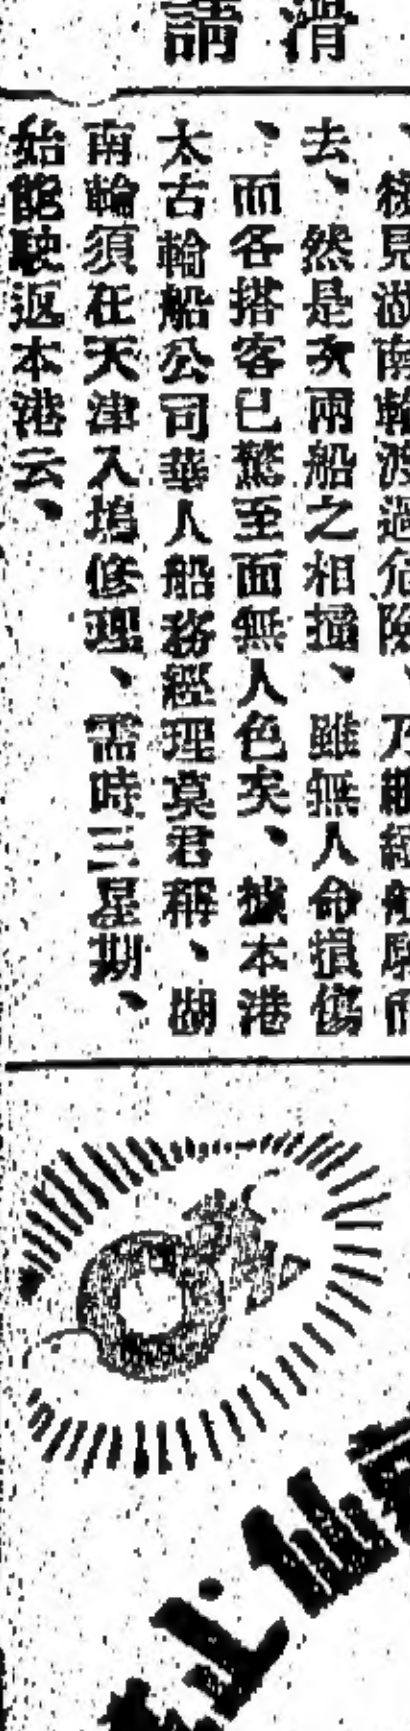 滑請
、續見湖南輪渡過危險、乃繼續航駛而
去、然是次兩船之相撞、雖無人命損傷
、而各搭客已驚至面無人色矣、據本港
太古輪船公司華人船務經理莫君稱、湖
南輪須在天津入塢修理、需時三星期、
始能駛返本港云、
仙
上